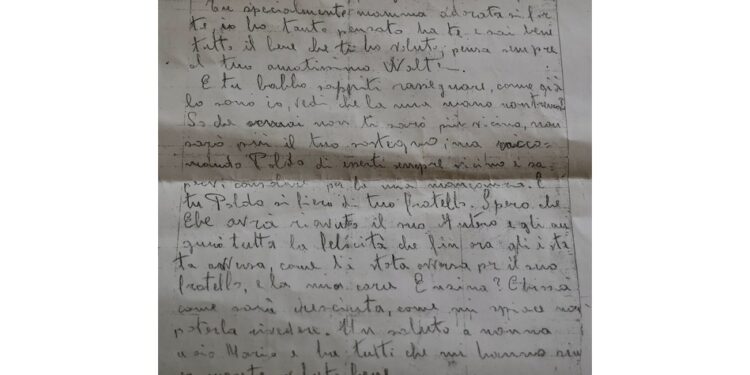 Tu specialmente mamma adorata sii for
te, io ho tanto pensato ha te e sai bene
tutto il bene che ti ho voluto, pensa sempre
al tuo amatissimo Walte
E tu babbo sappiti rassegnare, come già
lo sono io, vedi che la mia mano non trema?
So che ormai non ti sarò più vicino, non
sarò più il tuo sostegno, ma racco-
mando Poldo di esserti sempre vicino e sa-
pervi consolare per la mia mancanza. E
tu Poldo sii fiero di tuo fratello. Spero che
Ebe avrà riavuto il suo Antero e gli au
guro tutta la felicità che fin ora gli è sta
ta avversa, come li è stata avversa per il suo
fratello, e la mia cara Ensina? Chissà
come sarà cresciuta, come mi spiace non
poterla rivedere. Un saluto a nonna
a zio Mario e ha tutti che mi hanno
voluto bene